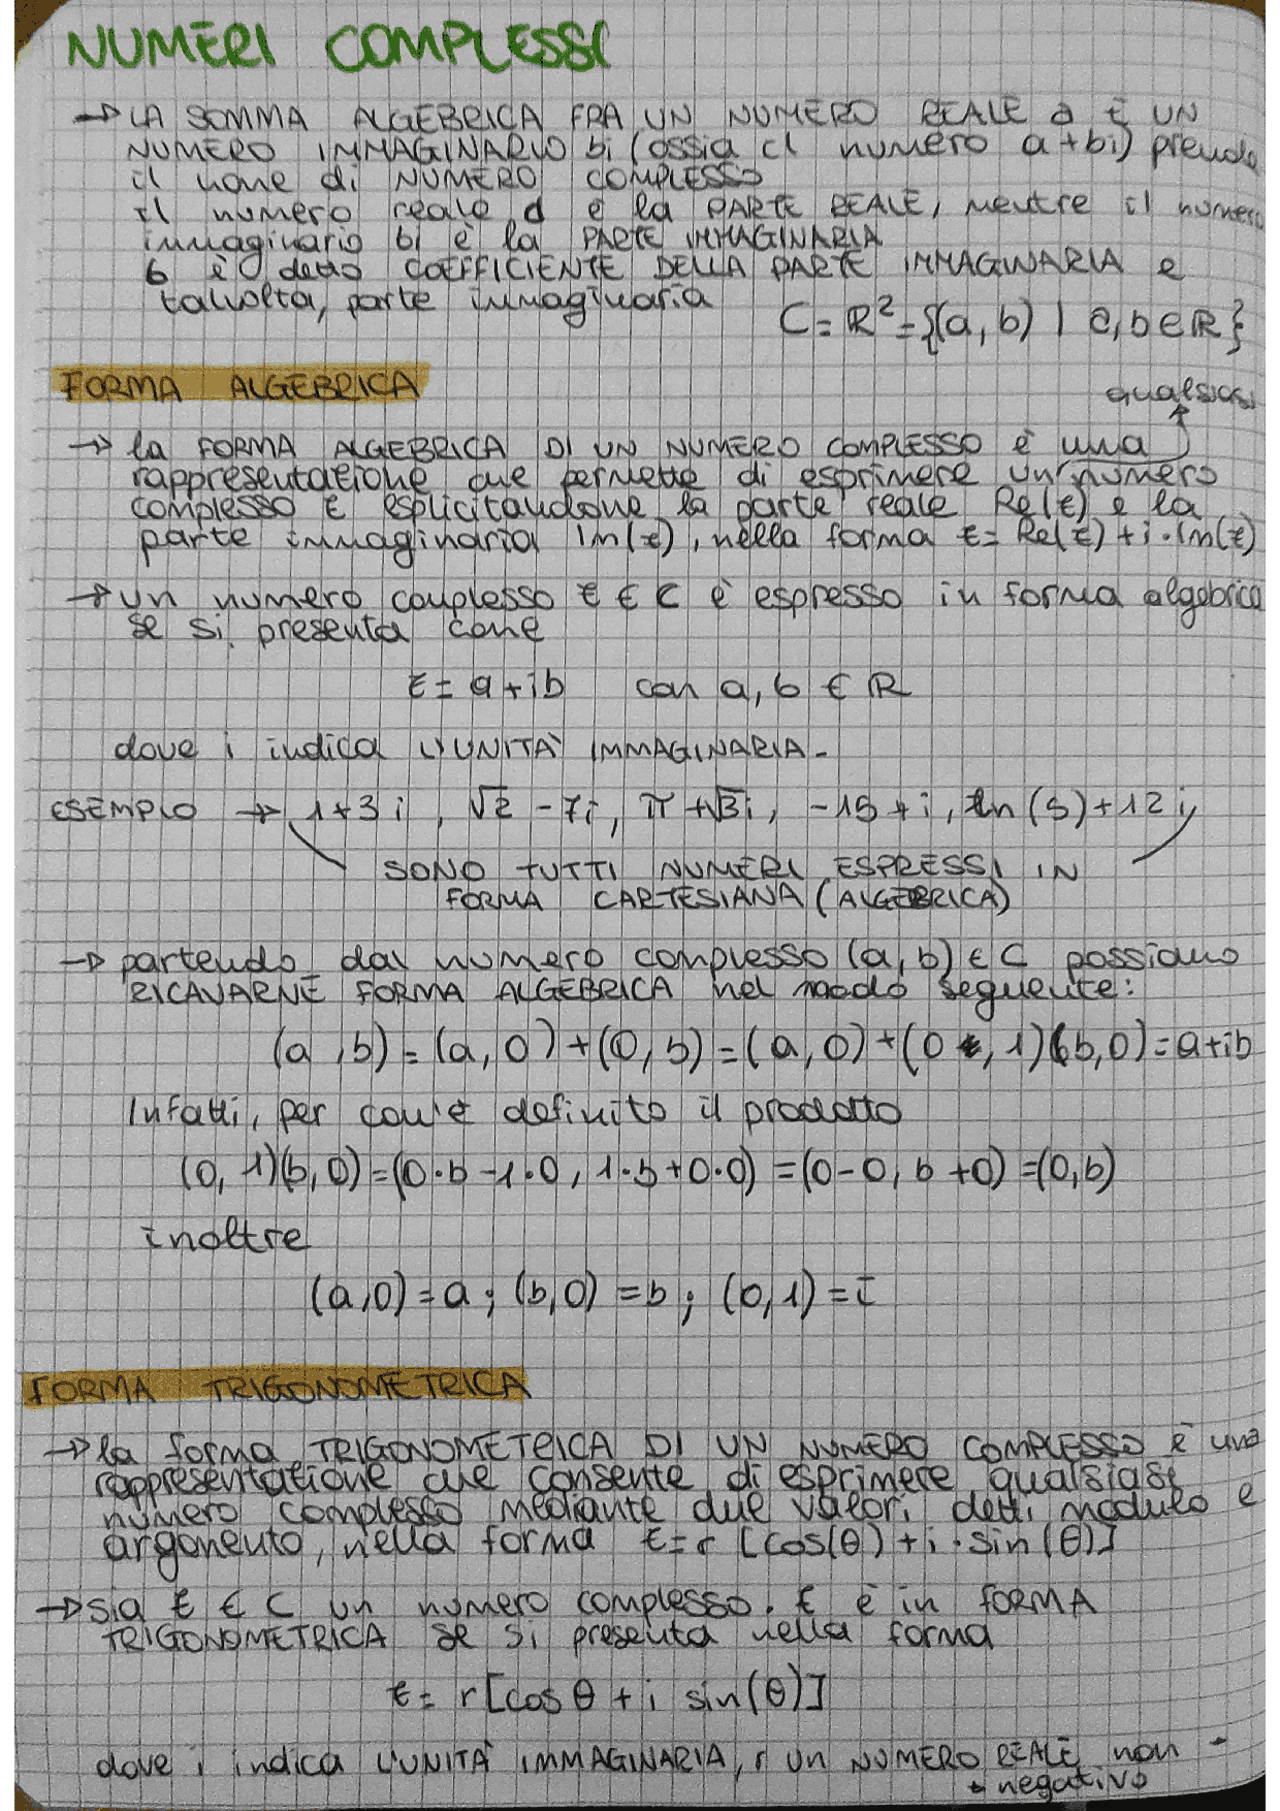 NUMERI COMPLESSI
→ LA SOMMA ALGEBRICA FRA UN NUMERO REALE a E UN
NUMERO IMMAGINARIO bi (ossia il numero a+bi) prende
il nome di NUMERO COMPLESSO
Il numero reale a è la PARTE REALE, mentre il numero
immaginario bi è la PARTE IMMAGINARIA
b è detto COEFFICIENTE DELLA PARTE IMMAGINARIA e
talvolta, parte immaginaria
C = ℝ² = {(a, b) | a, b ∈ ℝ}
FORMA ALGEBRICA
qualsiasi
→ la FORMA ALGEBRICA DI UN NUMERO COMPLESSO è una
rappresentazione che permette di esprimere un numero
complesso z esplicitandone la parte reale Re(z) e la
parte immaginaria Im(z), nella forma z = Re(z) + i · Im(z)
→ un numero complesso z ∈ C è espresso in forma algebrica
se si presenta come
z = a + ib con a, b ∈ ℝ
dove i indica L'UNITÀ IMMAGINARIA.
ESEMPIO → 1+3i, √2 -7i, π +√3i, -15 + i, ln (5)+12i
SONO TUTTI NUMERI ESPRESSI IN
FORMA CARTESIANA (ALGEBRICA)
→ partendo dal numero complesso (a, b) ∈ C possiamo
RICAVARNE FORMA ALGEBRICA nel modo seguente:
(a, b) = (a, 0) + (0, b) = (a, 0) + (0, 1)(b, 0) = a+ib
Infatti, per com'è definito il prodotto
(0, 1)(b, 0) = (0·b -1·0, 1·b+0·0) = (0-0, b+0) = (0,b)
inoltre
(a,0) = a; (b,0) = b; (0,1) = i
FORMA TRIGONOMETRICA
→ la forma TRIGONOMETRICA DI UN NUMERO COMPLESSO è una
rappresentazione che consente di esprimere qualsiasi
numero complesso mediante due valori detti modulo e
argomento, nella forma z = r [cos(θ) + i · sin (θ)]
→ sia z ∈ C un numero complesso. z è in FORMA
TRIGONOMETRICA se si presenta nella forma
z = r [cos θ + i sin(θ)]
dove i indica L'UNITÀ IMMAGINARIA, r un NUMERO REALE non -
- negativo